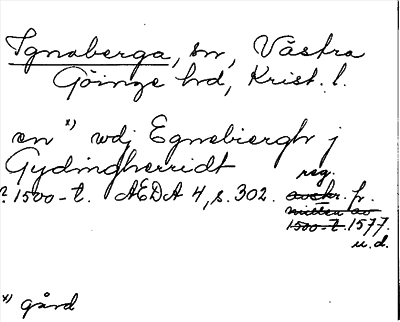 Ignaberga, sn, Västra
Göinge hd, Krist. l.
en x) wdj Egnebiergh j
Gydingherridt
? 1500-t. AEDA 4, s. 302. reg.
avskr. fr.
mitten av
1500-t. 1577.
u.d.
x) gård